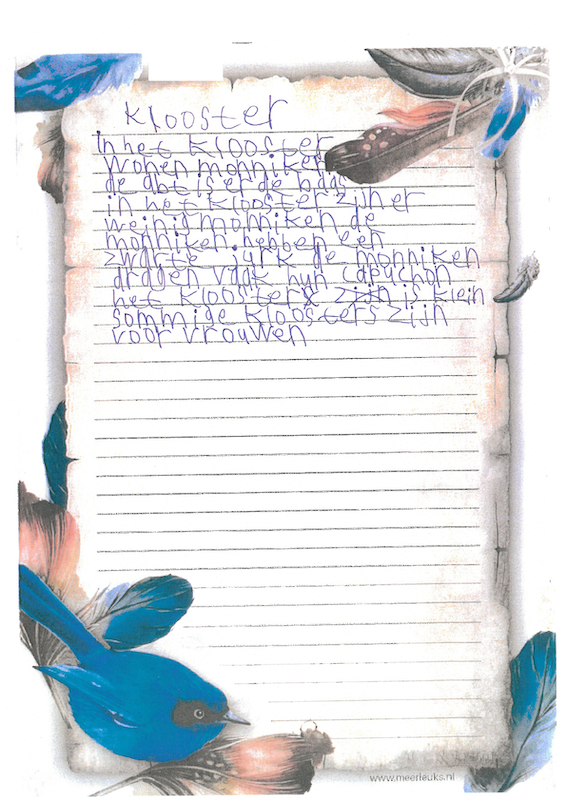 klooster
in het klooster
wonen monniken
de abt is er de baas
in het klooster zijn er
weinig monniken de
monniken hebben een
zwarte jurk de monniken
dragen vaak hun capuchon
het kloosters zijn is klein
sommige kloosters zijn
voor vrouwen
www.meerleuks.nl